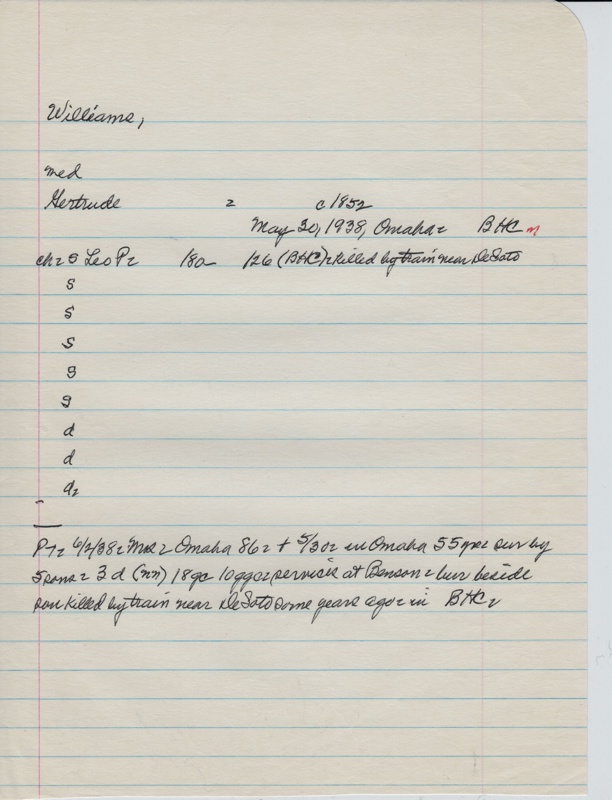 Williams,
med
Gertrude 2 c1852
May 30, 1938, Omaha2 BHC m
ch2 S Leo P2 180 /26 (BHC)2 killed by train near DeSoto
S
S
S
S
S
d
d
d2
PT2 6/2/382 Mrs2 Omaha 862 + 5/302 in Omaha 55 yrs2 sur by
5 sons2 3 d (nn) 18 gc 10 ggc2 services at Benson2 bur beside
son killed by train near DeSoto some years ago2 in BHC2